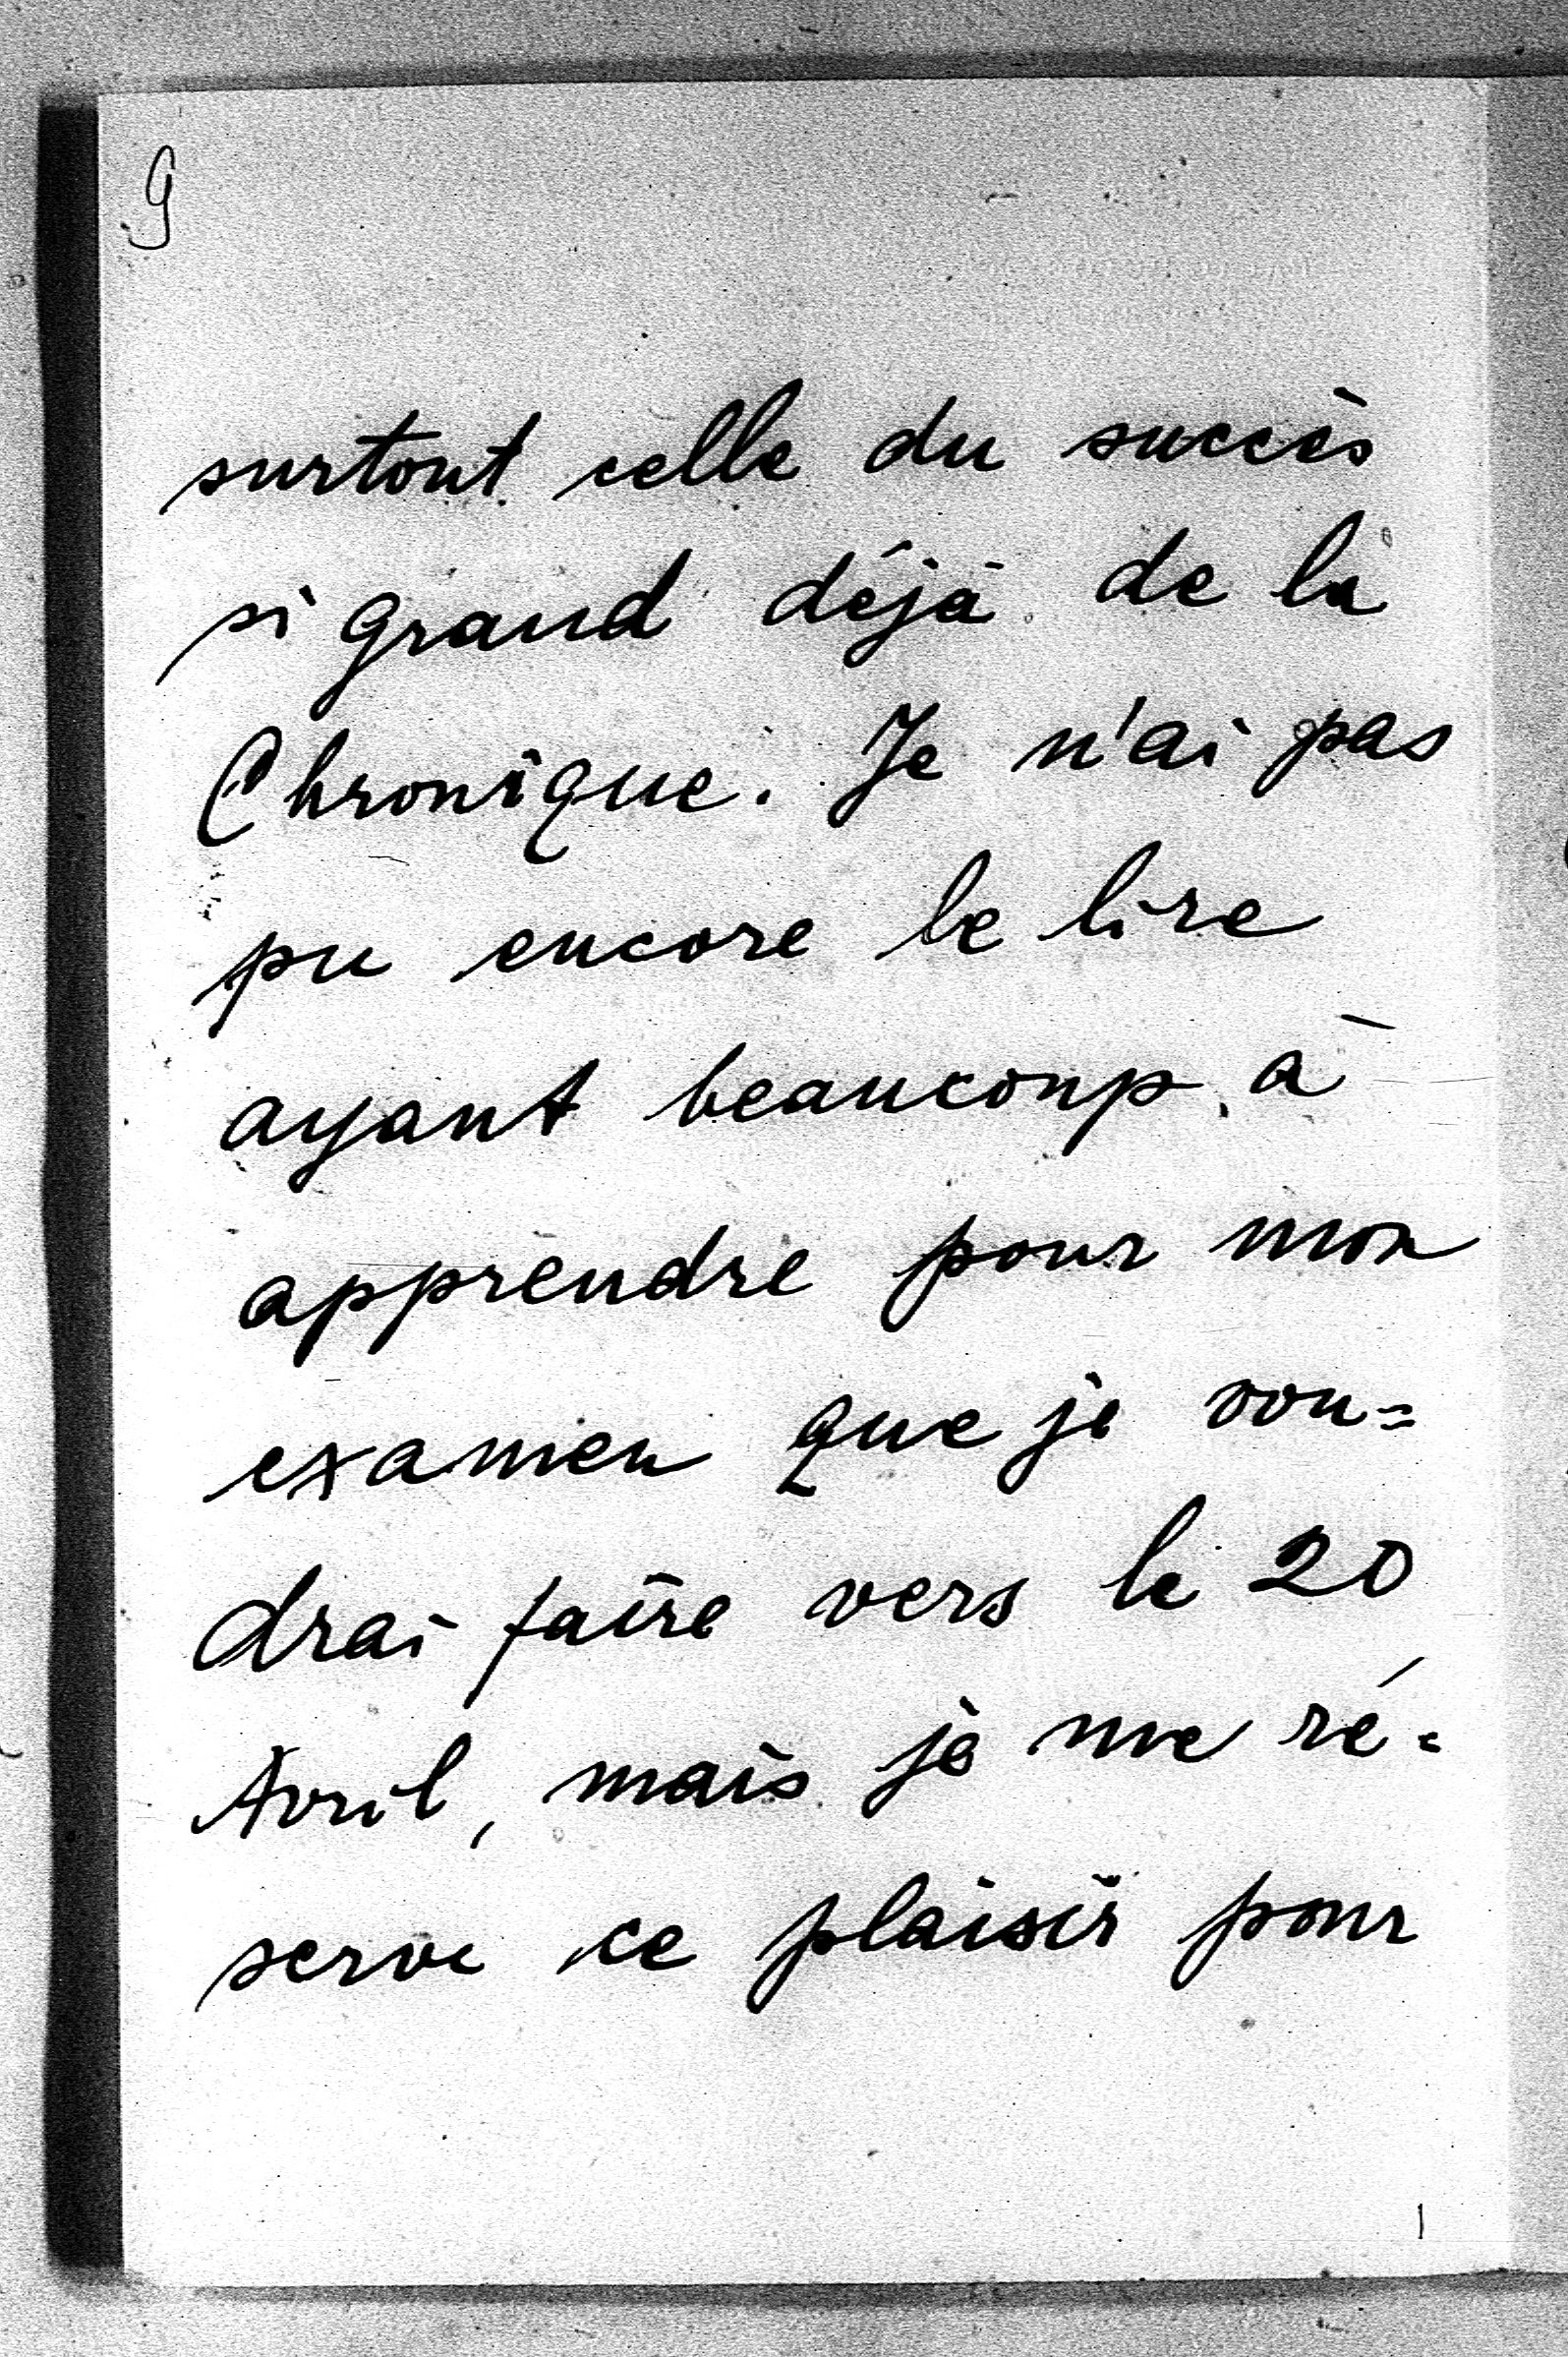 9
surtout celle du succès
si grand déjà de la
Chronique. Je n'ai pas
pu encore le lire
ayant beaucoup à
apprendre pour mon
examen que je vou=
drai faire vers le 20
Avril, mais je me ré=
serve ce plaisir pour